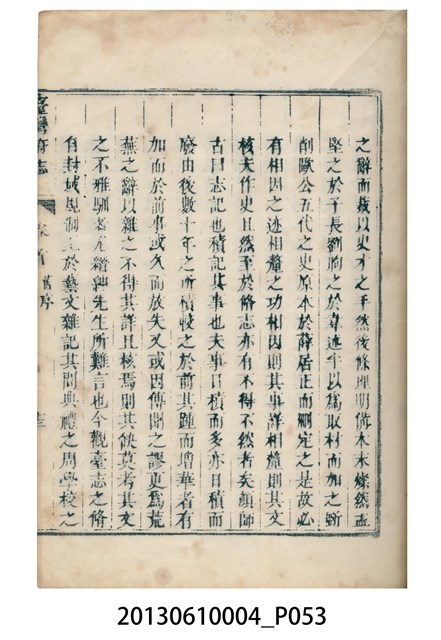 之辭而裁以史才之手然後條理明備本末燦然孟
堅之於子長劉昫之於韋述半以為取材而加之斬
削歐公五代之史原本於薛居正而刪定之是故必
有相因之迹相釐之功相因則其事詳相釐則其文
核夫作史且然至於脩志亦有不得不然者矣顏師
古曰志記也積記其事也夫事日積而多亦日積而
廢由後數十年之所積較之於前其踵而增華者有
加而於前事或久而放失又或因傳聞之謬更為荒
蕪之辭以雜之不得其詳且核焉則其缺莫考其文
之不雅馴者尤縉紳先生所難言也今觀臺志之脩
自封域規制至於藝文雜記其間典禮之周學校之
臺灣府志 卷首 舊序 十三
20130610004_P053